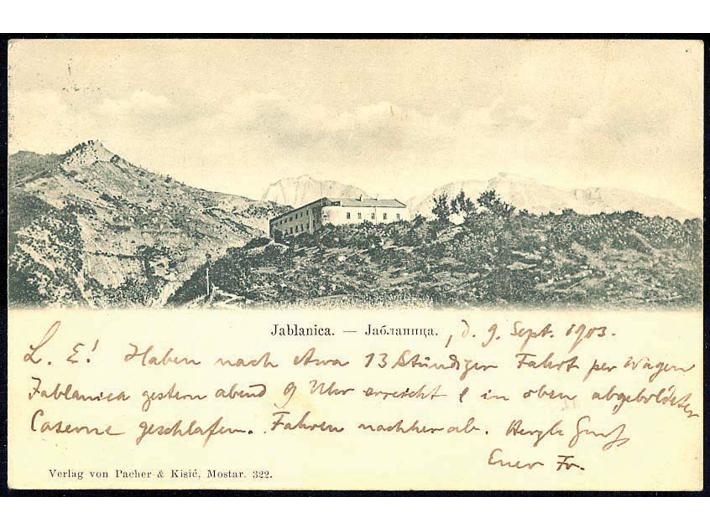 Jablanica. — Јабланица. , d. 9. Sept. 1903.
L. E! Haben nach 13 stündiger Fahrt per Wagen
Jablanica gestern abend 9 Uhr erreicht & in oben abgebildeter
Caserne geschlafen. Fahren nachher ab. Herzl. Gruß
Euer Fr.
Verlag von Pacher & Kisić, Mostar. 322.